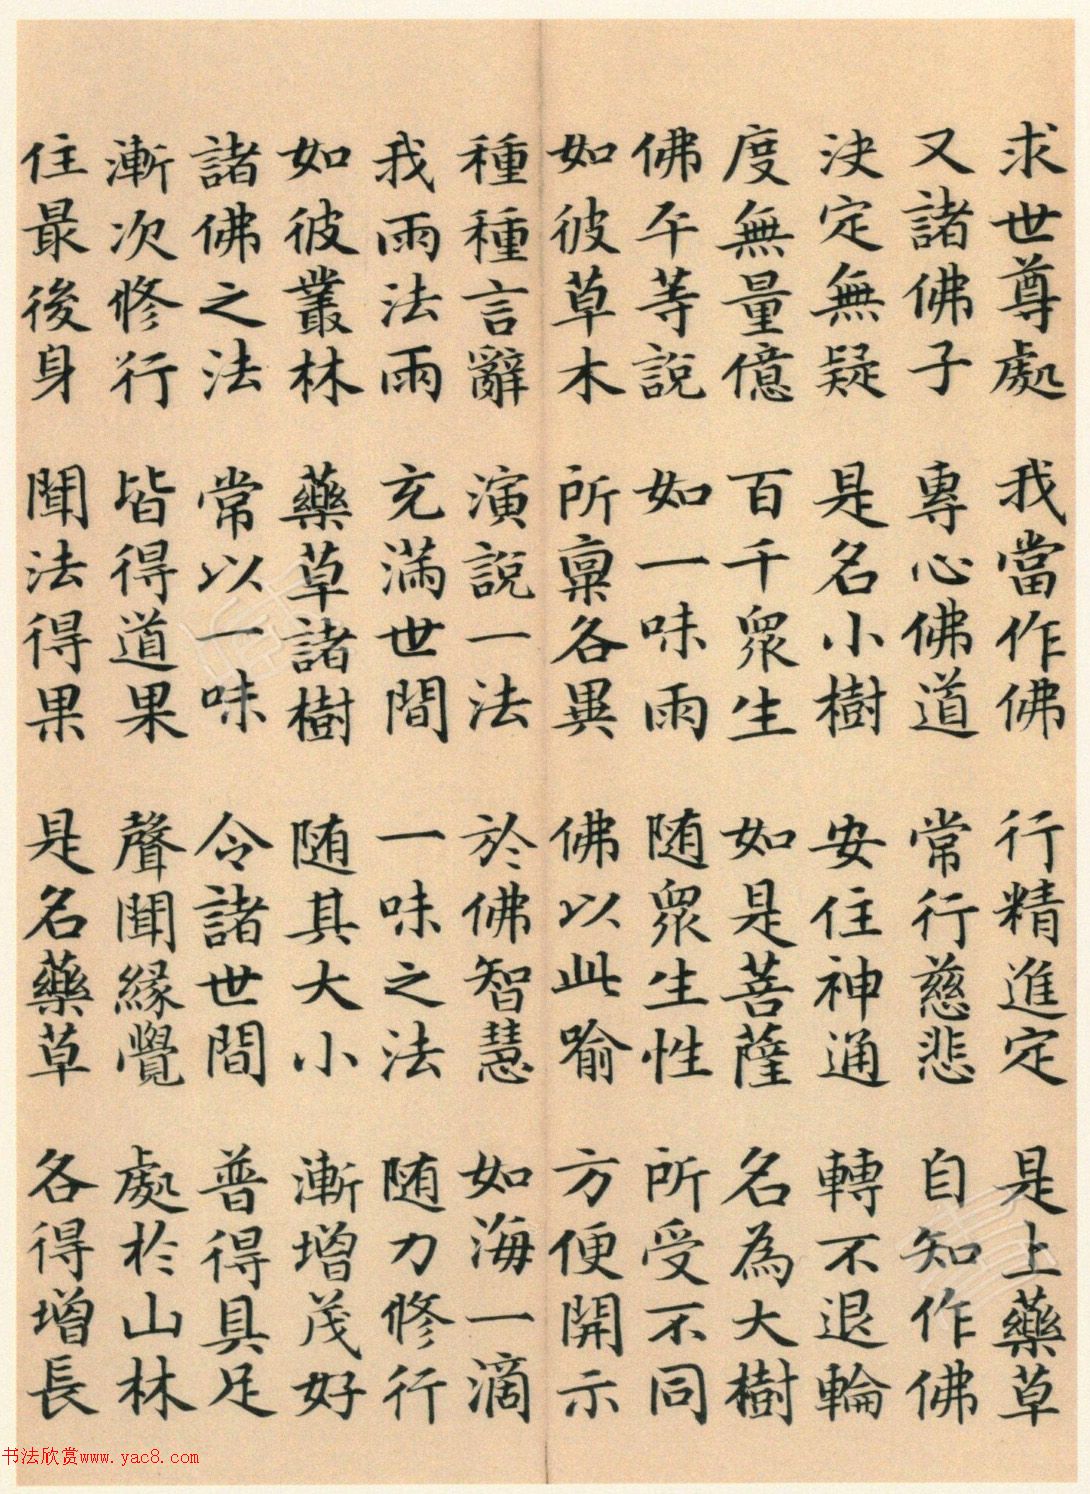 求世尊處 我當作佛 行精進定 是上藥草
又諸佛子 專心佛道 常行慈悲 自知作佛
決定無疑 是名小樹 安住神通 轉不退輪
度無量億 百千眾生 如是菩薩 名為大樹
佛平等說 如一味雨 随眾生性 所受不同
如彼草木 所稟各異 佛以此喻 方便開示
種種言辭 演說一法 於佛智慧 如海一滴
我雨法雨 充滿世間 一味之法 随力修行
如彼叢林 藥草諸樹 随其大小 漸增茂好
諸佛之法 常以一味 令諸世間 普得具足
漸次修行 皆得道果 聲聞緣覺 處於山林
住最後身 聞法得果 是名藥草 各得增長
书法欣赏www.yac8.com